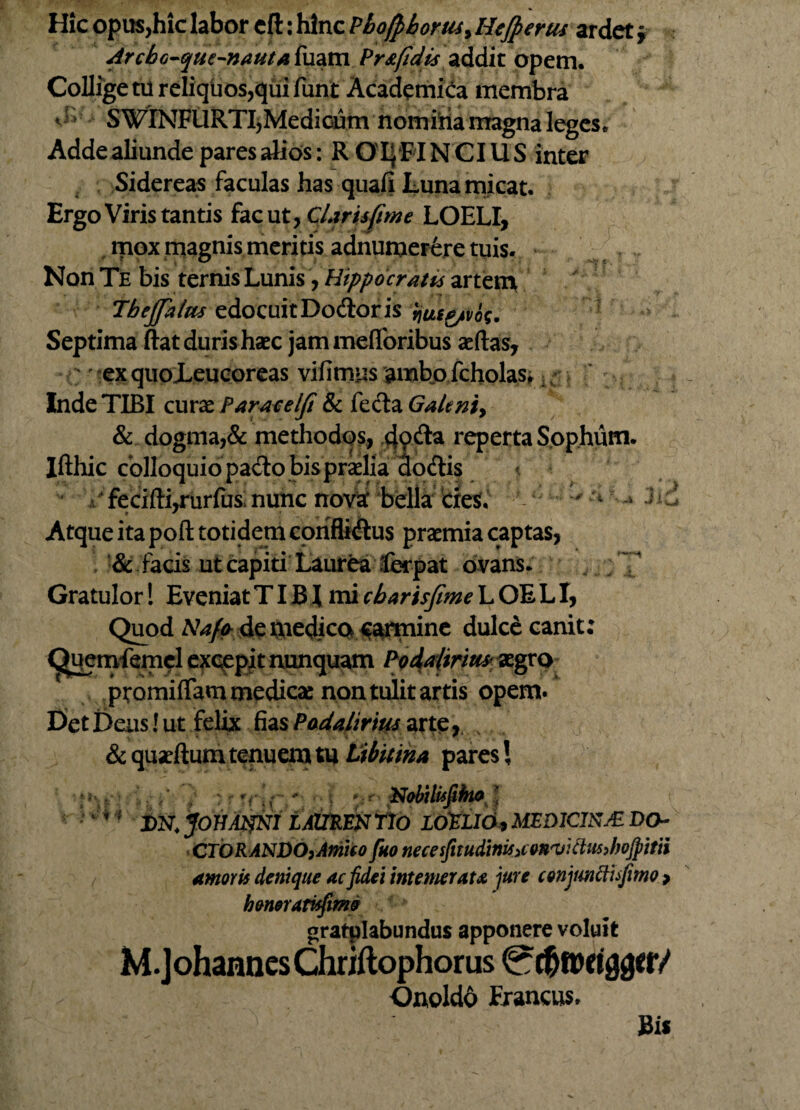 Hic opus,hic labor eſt: hînc Phoſphorus, Heſperus ardet;
Archo-que-nauta ſuam Præſidis addit opem.
Collige tu reliquos,qui ſunt Academica membra
SWINFURTI,Medicûm nomina magna leges.
Adde aliunde pares alios: ROLFINCIUS inter
Sidereas faculas has quaſi Luna micat.
Ergo Viris tantis fac ut, Clarisſime LOELI,
mox magnis meritis adnumerêre tuis.
Non Te bis ternis Lunis, Hippocratis artem
Theſſalus edocuit Doctoris
Septima ſtat duris hæc jam meſſoribus æſtas,
ex quo Leucoreas viſimus ambo ſcholas.
Inde TIBI curæ Paracelſi & ſecta Galeni,
& dogma,& methodos, docta reperta Sophûm.
Iſthic colloquio pacto bis prælia doctis
feciſti,rurſus nunc nova bella cies.
Atque ita poſt totidem conflictus præmia captas,
& facis ut capiti Laurea ſerpat ovans.
Gratulor! Eveniat TIBI mi charisſime LOELI,
Quod Naſo de medico carmine dulcè canit:
Quem ſemel excepit nunquam Podalirius ægro
promiſſam medicæ non tulit artis opem.
Det Deus! ut felix fias Podalirius arte,
& quæſtum tenuem tu Libitina pares!
Nobilisſimo
DN. JOHANNI LAURENTIO LOELIO, MEDICINÆ DO-
CTORANDO, Amico ſuo necesſitudinis,convictus,hoſpitii
amoris denique ac fidei intemerata jure conjunctisſimo,
honoratisſimo
gratulabundus apponere voluit
M.Johannes Chriſtophorus Schweigger/
Onoldô Francus.
Bis